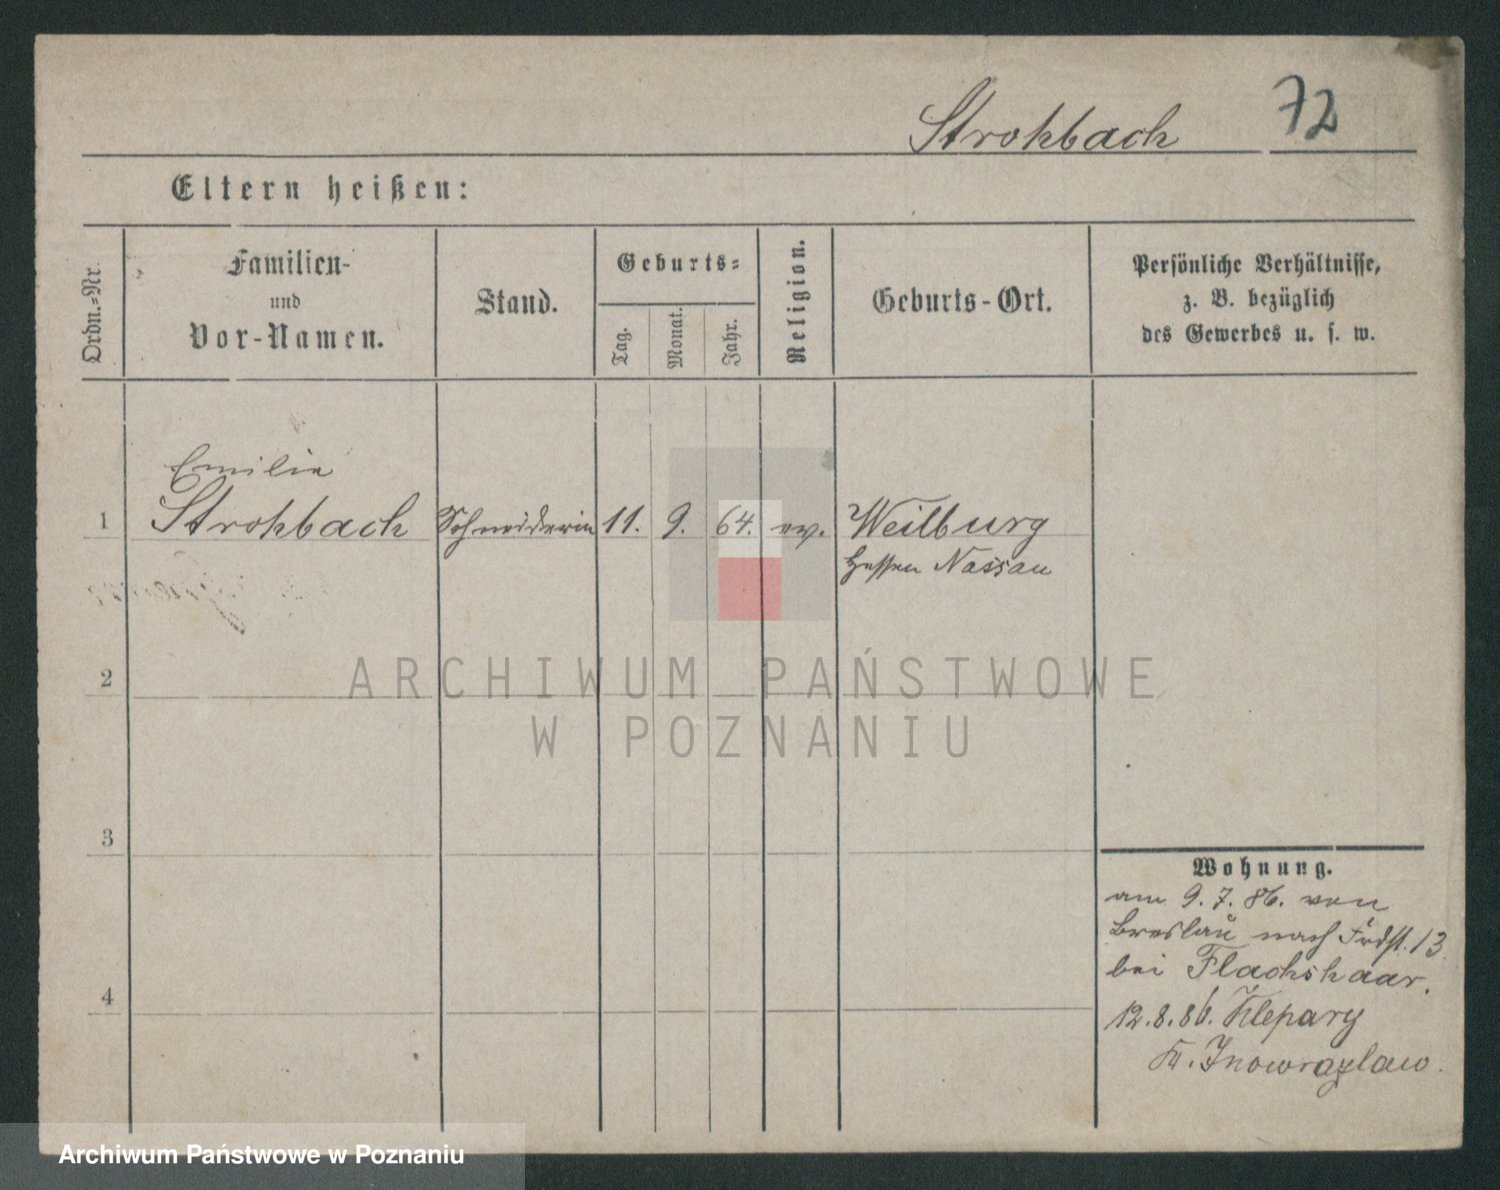 Strohbach 72
Eltern heißen:
Ordn.=Nr.
Familien-
und
Vor-Namen.
Stand.
Geburts=
Tag.
Monat.
Jahr.
Religion.
Geburts-Ort.
Persönliche Verhältnisse,
z. B. bezüglich
des Gewerbes u. s. w.
Emilie
1 Strohbach Schneiderin 11. 9. 64. ev. Weilburg
Hessen Nassau
2
3
4
Wohnung.
am 9. 7. 86. von
Breslau nach Frdst. 13.
bei Flachshaar.
12. 8. 86. Klepary
Kr. Inowrazlaw.
ARCHIWUM PAŃSTWOWE
W POZNANIU
Archiwum Państwowe w Poznaniu